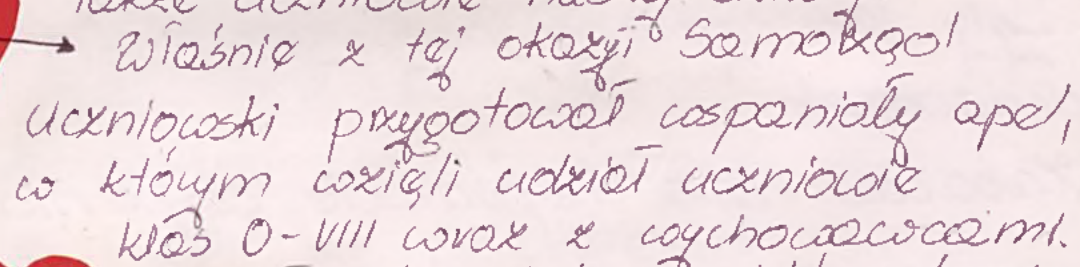 także uczniowie naszej
Właśnie z tej okazji Samorząd
Uczniowski przygotował wspaniały apel,
w którym wzięli udział uczniowie
klas 0-VIII wraz z wychowawcami.